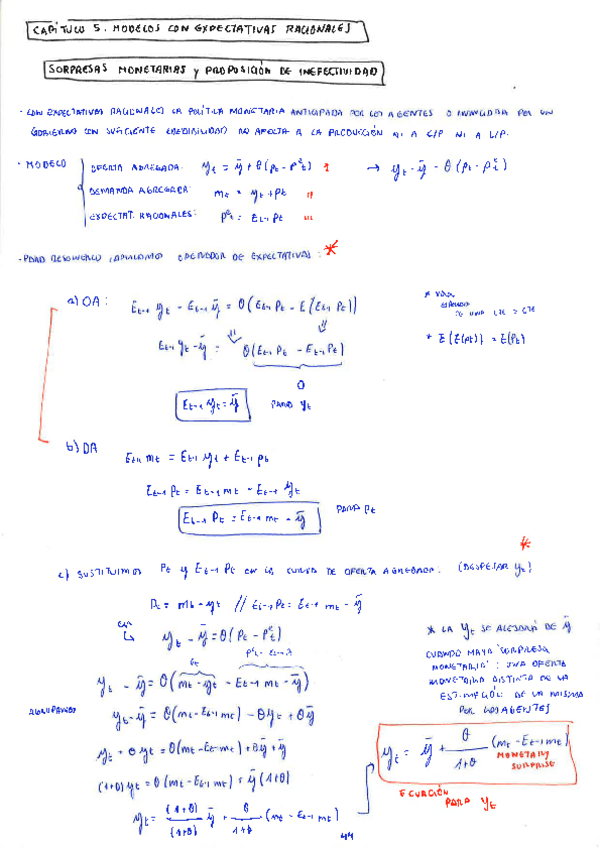 CAPÍTULO 5. MODELOS CON EXPECTATIVAS RACIONALES
SORPRESAS MONETARIAS y PROPOSICIÓN DE INEFECTIVIDAD
· CON EXPECTATIVAS RACIONALES LA POLÍTICA MONETARIA ANTICIPADA POR LOS AGENTES O ANUNCIADA POR UN
GOBIERNO CON SUFICIENTE CREDIBILIDAD NO AFECTA A LA PRODUCCIÓN NI A C/P NI A L/P.
· MODELO
OFERTA AGREGADA: yt = ȳ + θ(Pt - Pᵉt) I → yt - ȳ = θ(Pt - Pᵉt)
DEMANDA AGREGADA: mt = yt + Pt II
EXPECTAT. RACIONALES: Pᵉt = Et-1 Pt III
· PARA RESOLVERLO APLICAMOS OPERADOR DE EXPECTATIVAS: *
a) OA: Et-1 yt - Et-1 ȳ = θ(Et-1 Pt - E(Et-1 Pt))
Et-1 yt - ȳ = θ(Et-1 Pt - Et-1 Pt)
0
Et-1 yt = ȳ PARA yt
* E(E(Pt)) = E(Pt)
b) DA
Et-1 mt = Et-1 yt + Et-1 Pt
Et-1 Pt = Et-1 mt - Et-1 yt
Et-1 Pt = Et-1 mt - ȳ PARA Pt
*
c) SUSTITUIMOS Pt y Et-1 Pt EN LA CURVA DE OFERTA AGREGADA. (DESPEJAR yt)
Pt = mt - yt // Et-1 Pt = Et-1 mt - ȳ
yt - ȳ = θ(Pt - Pᵉt)
yt - ȳ = θ(mt - yt - Et-1 mt - ȳ)
AGRUPANDO yt - ȳ = θ(mt - Et-1 mt) - θyt + θȳ
yt + θyt = θ(mt - Et-1 mt) + θȳ + ȳ
(1+θ) yt = θ(mt - Et-1 mt) + ȳ(1+θ)
yt = (1+θ)/(1+θ) ȳ + θ/1+θ (mt - Et-1 mt)
* LA yt SE ALEJARÁ DE ȳ
CUANDO HAYA "SORPRESA
MONETARIA": UNA OFERTA
MONETARIA DISTINTA DE LA
ESTIMACIÓN DE LA MISMA
POR LOS AGENTES
yt = ȳ + θ/1+θ (mt - Et-1 mt)
MONETARY
SURPRISE
ECUACIÓN
PARA yt
44